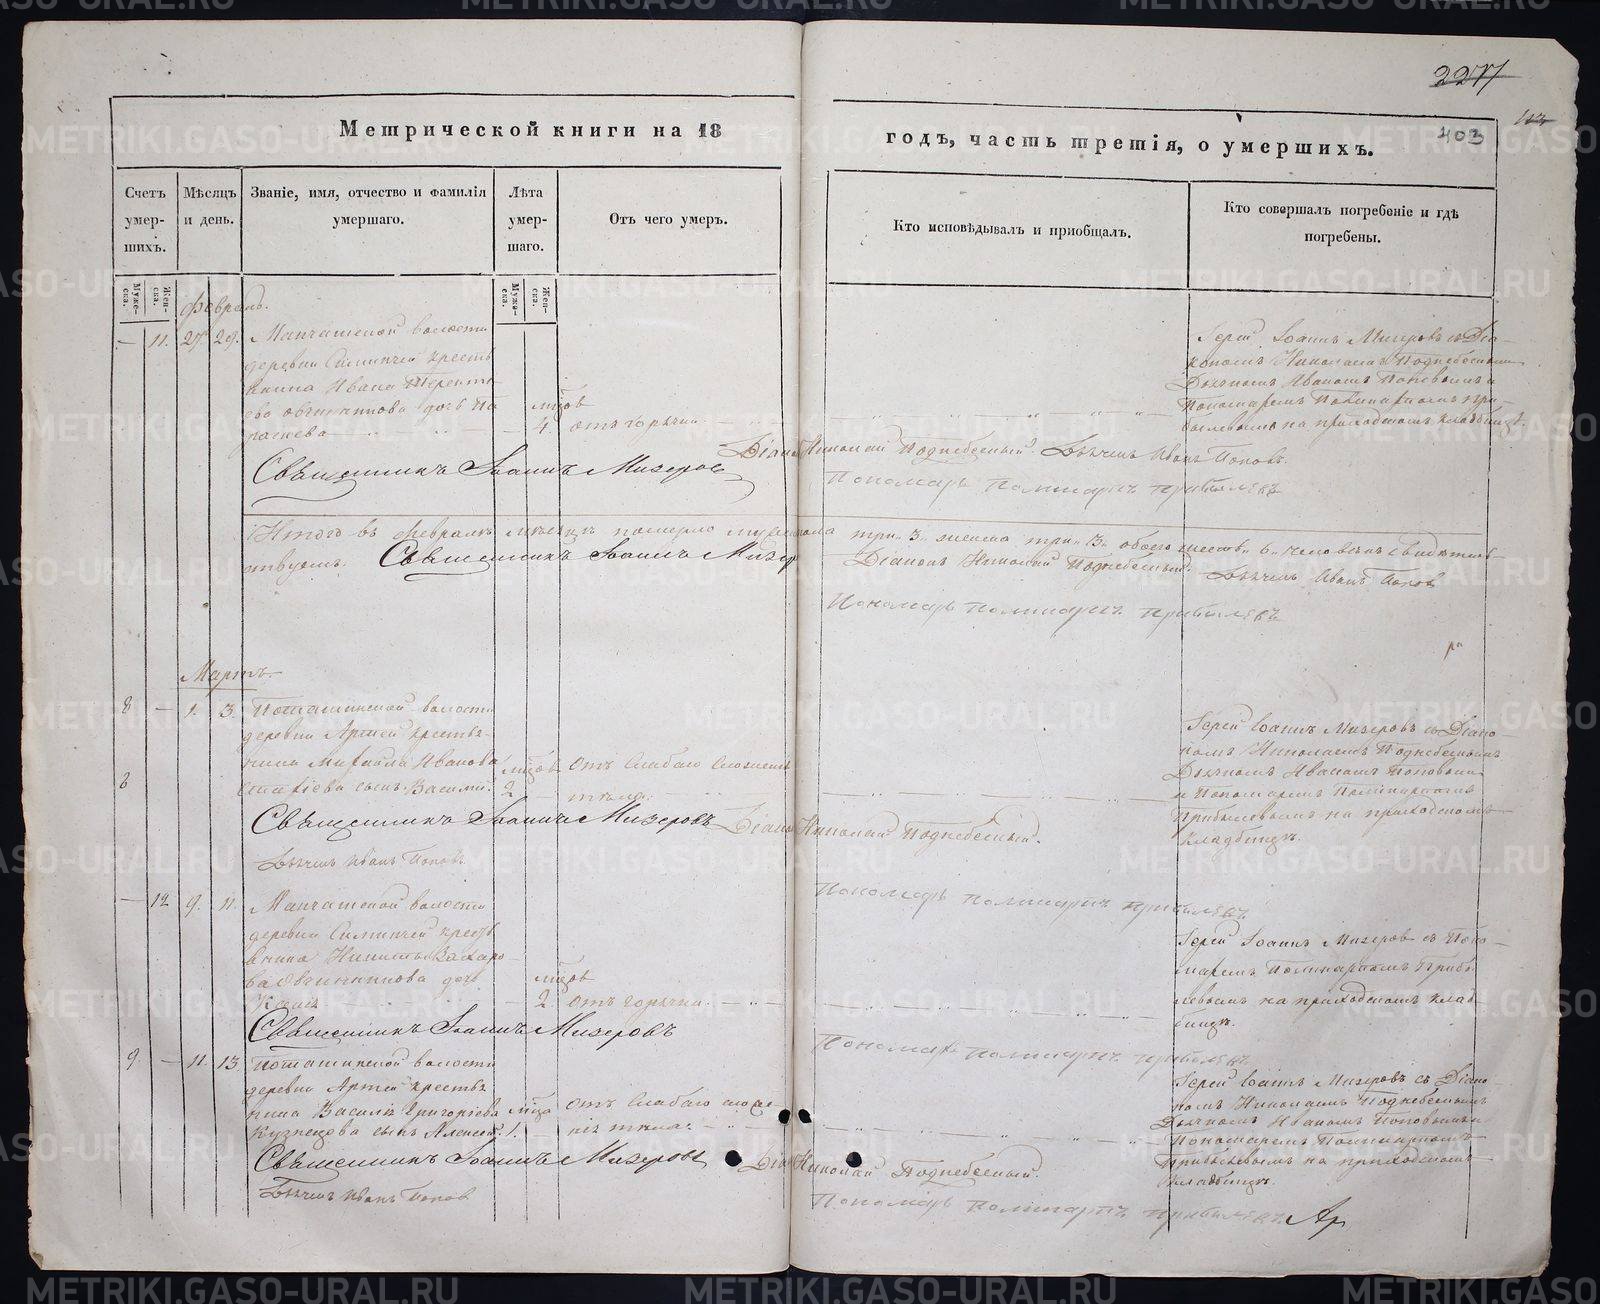 227
403
Метрической книги на 18 годъ, часть третія, о умершихъ.
Счетъ умер-шихъ.
Мѣсяцъ и день.
Званіе, имя, отчество и фамилія умершаго.
Лѣта умер-шаго.
Отъ чего умеръ.
Кто исповѣдывалъ и пріобщалъ.
Кто совершалъ погребеніе и гдѣ погребены.
Муже-ска.
Жен-ска.
Муже-ска.
Жен-ска.
Февраль.
11. 27 29. Манчажской волости
деревни крестья
нина Ивана Теренть
ева Овчинникова дочь Па
раскева
мцов
4. отъ горячки
Іерей Іоаннъ Мизеровъ съ Діа-
кономъ Николаемъ Поднебеснымъ
Дьячкомъ Иваномъ Поповымъ и
Пономаремъ При-
былевымъ на приходскомъ кладбищѣ.
Священникъ Іоаннъ Мизеровъ
Діаконъ Николай Поднебесный. Дьячекъ Иванъ Поповъ.
Пономарь Прибылевъ
Итого въ Февралѣ мѣсяцѣ померло мужеска пола три 3 женска три 3 обоего 6 человекъ свидѣтель
ствуемъ. Священникъ Іоаннъ Мизер
Діаконъ Николай Поднебесный. Дьячекъ Иванъ Поповъ
Пономарь Прибылевъ
Мартъ.
8 — 1. 3. Поташинской волости
деревни Артей крестья-
нина Михаила Иванова
сынъ Василій.
мцов
2
отъ слабаго сложенія
тѣла.
Іерей Іоаннъ Мизеровъ съ Діако-
номъ Николаемъ Поднебеснымъ
Дьячкомъ Иваномъ Поповымъ
и Пономаремъ
Прибылевымъ на приходскомъ
кладбищѣ.
Священникъ Іоаннъ Мизеровъ Діаконъ Николай Поднебесный.
Дьячекъ Иванъ Поповъ
Пономарь Прибылевъ
— 12 9. 11. Манчажской волости
деревни крестья
нина Никиты Захаро-
ва Овчинникова дочь
Ксенія
мцов
2 отъ горячки.
Іерей Іоаннъ Мизеровъ съ Поно-
маремъ Прибы
левымъ на приходскомъ клад
бищѣ.
Священникъ Іоаннъ Мизеровъ
Пономарь Прибылевъ
9. — 11. 13 Поташинской волости
деревни Артей крестья
нина Василія Григорьева
Кузнецова сынъ Алексей.
мца
1.
отъ слабаго сложе
нія тѣла.
Іерей Іоаннъ Мизеровъ съ Діако-
номъ Николаемъ Поднебеснымъ
Дьячкомъ Иваномъ Поповымъ и
Пономаремъ
Прибылевымъ на приходскомъ
кладбищѣ.
Священникъ Іоаннъ Мизеровъ Діаконъ Николай Поднебесный.
Дьячекъ Иванъ Поповъ
Пономарь Прибылевъ
METRIKI.GASO-URAL.RU